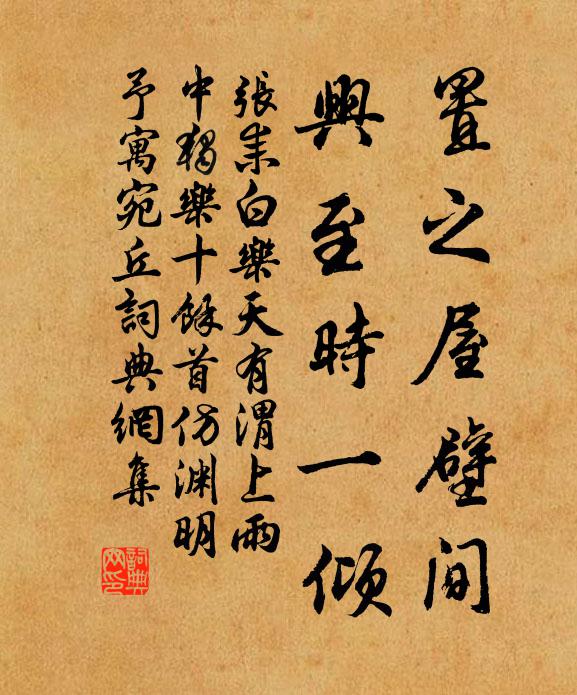 置之屋壁间
興至時一傾
張耒白樂天有渭上雨
中獨樂十餘首仿渊明
予寓宛丘詞典網集
詞典网印